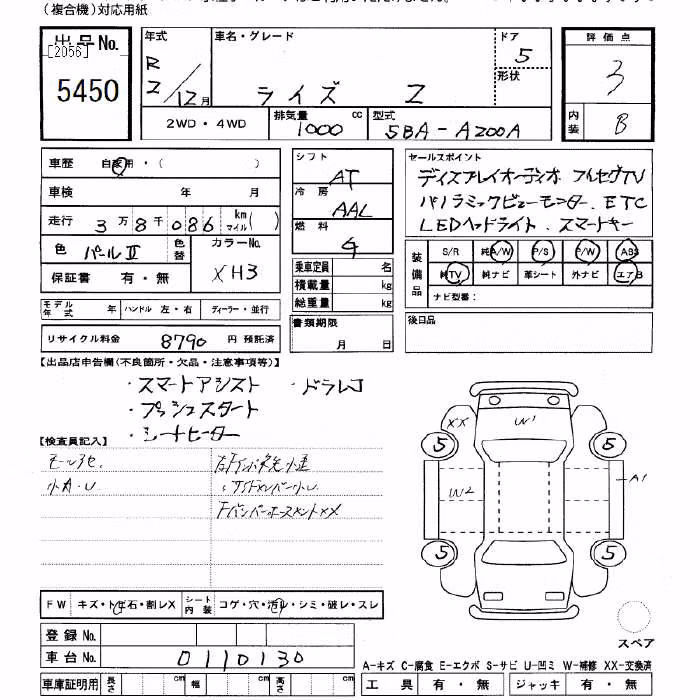 (複合機)対応用紙
出品No.
[2056]
5450
年式
R2/12月
車名・グレード
ライズ Z
ドア
5
形状
2WD・4WD
排気量
1000 cc
型式
5BA-A200A
評価点
3
内装
B
車歴 自家用・( )
車検 年 月
走行 3万8千086 km マイル( )
色 パールII 色替
カラーNo.
XH3
保証書 有・無
シフト
AT
冷房
AAL
燃料
G
乗車定員 名
積載量 kg
総重量 kg
書類期限
月 日
セールスポイント
ディスプレイオーディオ フルセグTV
パノラミックビューモニター、ETC
LEDヘッドライト、スマートキー
装備品
S/R 純A/W P/S P/W ABS
純TV 純ナビ 革シート 外ナビ エアB
ナビ型番:
モデル年式 年 ハンドル 左・右 ディーラー・並行
リサイクル料金 8790 円 預託済
後日品
【出品店申告欄(不良箇所・欠品・注意事項等)】
・スマートアシスト ・ドラレコ
・プッシュスタート
・シートヒーター
【検査員記入】
小A・U
XX
W1
5
5
W2
A1
5
5
FW キズ・ト石・割レX シート内装 コゲ・穴・汚レ・シミ・破レ・スレ
登録No.
車台No. 0110130
車庫証明用 長さ cm 幅 cm 高さ cm
スペア
A-キズ C-腐食 E-エクボ S-サビ U-凹ミ W-補修 XX-交換済
工具 有・無 ジャッキ 有・無